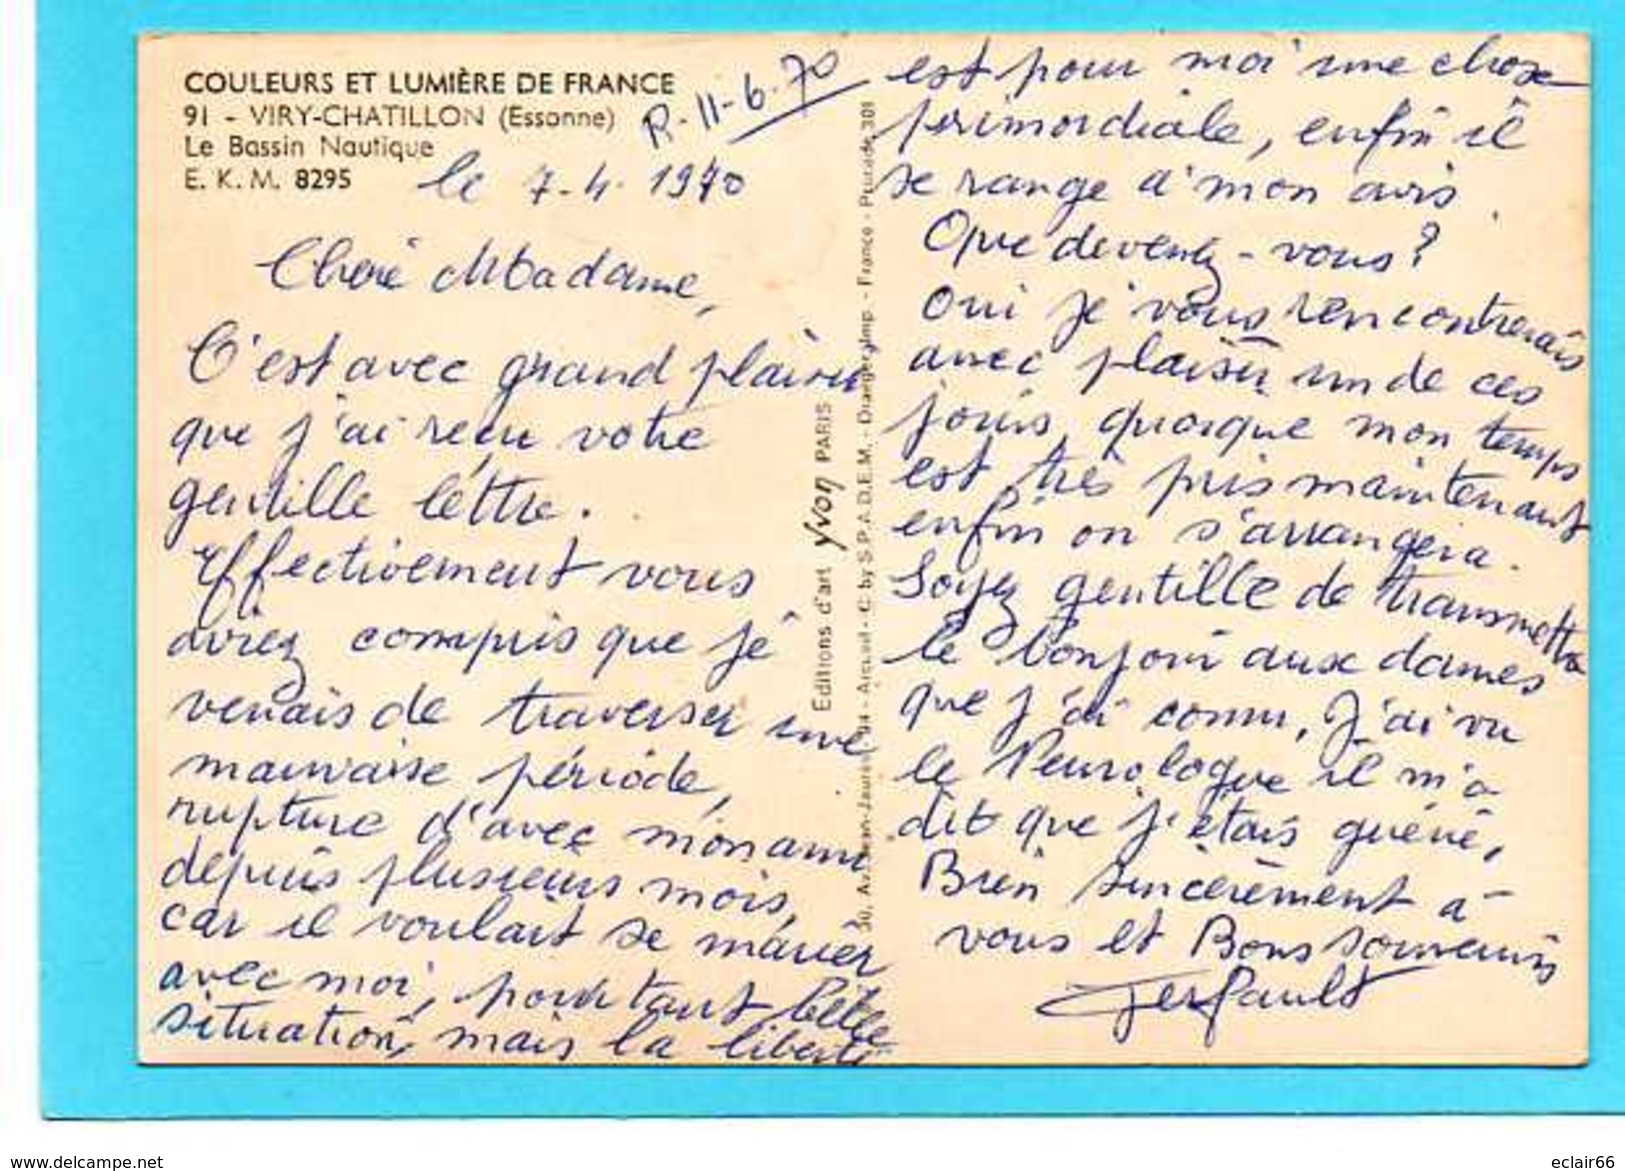 COULEURS ET LUMIÈRE DE FRANCE
91 - VIRY-CHATILLON (Essonne)
Le Bassin Nautique
E. K. M. 8295
R - 11-6-70
le 7-4-1970
Chère Madame,
C'est avec grand plaisir
que j'ai reçu votre
gentille léttre.
Effectivement vous
aviez compris que je
venais de traverser une
mauvaise période,
rupture d'avec mon ami
depuis plusieurs mois,
car il voulait se marier
avec moi, pourtant belle
situation, mais la liberté
Editions d'art Yvon PARIS
30, Av. Jean-Jaurès - 94 - Arcueil - C by S.P.A.D.E.M. - Draeger, Imp. - France
est pour moi une chose
primordiale, enfin il
se range à mon avis.
Que devenez-vous ?
Oui je vous rencontrerais
avec plaisir un de ces
jours, quoique mon temps
est très pris maintenant
enfin on s'arrangera.
Soyez gentille de transmettre
le bonjour aux dames
que j'ai connu, J'ai vu
le Neurologue il m'a
dit que j'étais guérie,
Bien sincèrement à
vous et Bons souvenirs